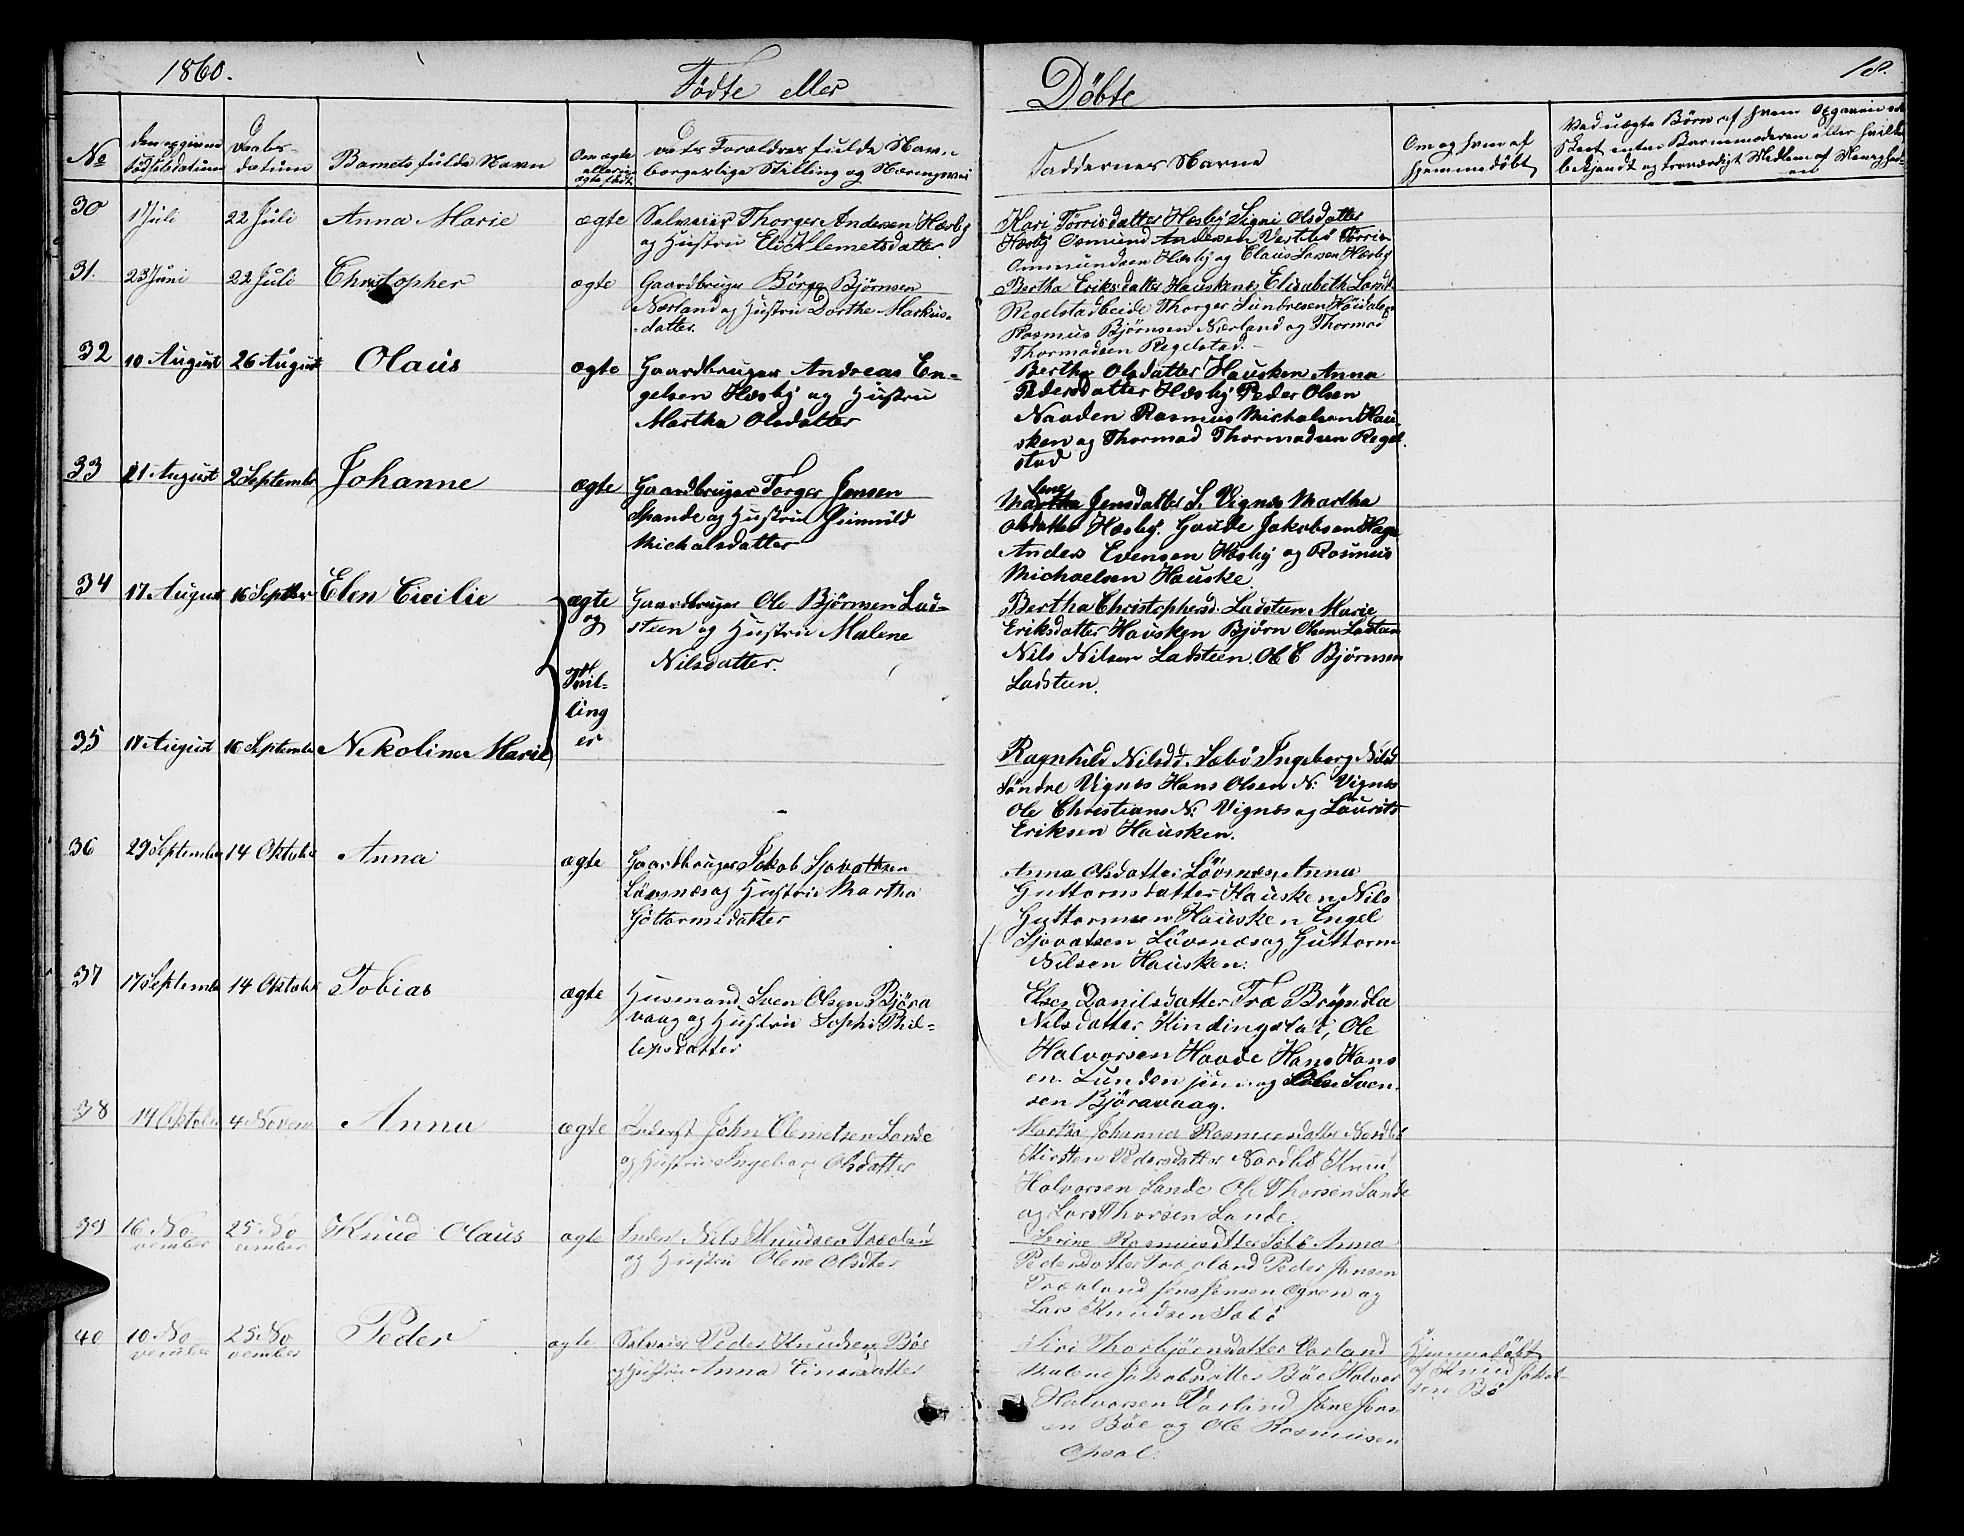 1860.
Födte eller
Döbte
18.
No
den opgivne
Födselsdatum
Daabs-
datum
Barnets fulde Navn
Om ægte
eller u-
ægte födt
Forældres fulde Navn
borgerlige Stilling og Næringsvei
Faddernes Navne
Om og hvem af
hjemmedöbt
Ved uægte Börn af hvem Opgaven er
skeet enten Barnemoderen eller hvilke
bekjendt og troværdigt Medlem af Menighed-
en
30
1 Juli
22 Juli
Anna Marie
ægte
Selveier Thorger Andersen Hæsby
og Hustru Eli Klemetsdatter
Kari Törrisdatter Hæsby Signi Olsdatter
Hæsby Osmund Andersen Vestbö Törris
Ommundsen Hæsby og Claus Larsen Hæsby
31.
23 Juni
22 Juli
Christopher
ægte
Gaardbruger Börge Björnsen
Nærland og Hustru Dorthe Markus-
datter
Bertha Eriksdatter Hauskene, Elisabeth Larsd.
Regelstad beide Thorger
Rasmus Björnsen Nærland og Thormod
Thormodsen Regelstad.
32
10 August
26 August
Olaus
ægte
Gaardbruger Andreas En-
gelsen Hæsby og Hustru
Martha Olsdatter
Bertha Olsdatter Hausken Anna
Pedersdatter Hæsby Peder Olsen
Naaden Rasmus Michalsen Hau-
sken og Thormod Thormodsen Regel-
stad
33
21 August
2 September
Johanne
ægte
Gaardbruger Torger Jensen
Spande og Hustru
Michalsdatter
Lene
Martha Jensdatter S. Vignæs Martha
Olsdatter Hæsby. Gaude Jakobsen Hage
Anders Evensen Hæsby og Rasmus
Michaelsen Hauske
34
17 August
16 Septber
Elen Cicilie
ægte
og
Tvil-
ling
er
Gaardbruger Ole Björnsen Lad-
steen og Hustru Malene
Nilsdatter.
Bertha Christophersd. Ladsteen Marie
Eriksdatter Hausken Björn Olsen Ladsten
Nils Nilsen Ladsteen. Ole E Björnsen
Ladsteen.
35
17 August
16 September
Nekoline Marie
Ragnhild Nilsd. Sæbö Ingeborg Nilsd
Söndre Vignæs Hans Olsen N. Vignæs
Ole Christians N. Vignæs og Laurits
Eriksen Hausken.
36
29 September
14 Oktober
Anna
ægte
Gaardbruger Jakob Sjovatsen
Lövenæs og Hustru Martha
Göttormsdatter
Anna Olsdatter Lövenæs, Anna
Guttormsdatter Hausken, Nils
Guttormsen Hausken Engel
Sjovatsen Lövenæs og Guttorm
Nilsen Hausken.
37
17 September
14 Oktober
Tobias
ægte
Husmand Sven Olsen Björa
vaag og Hustru Sophi Phil-
lipsdatter
Elsen Danilsdatter Træ Bryndla
Nilsdatter Kindingstad, Ole
Halvorsen Haade Hans Hans
en Lunden jun. og Svend
sen Björavaag.
38
14 Oktober
4 Novem
Anna
ægte
Inderst John Clemetsen Lande
og Hustru Ingeborg Olsdatter
Martha Johanna Rasmusdatter Nordbö
Kirsten Pedersdatter Nordbö Knud
Halvorsen Lande Ole Thorsen Lande
og Lars Thorsen Lande.
39
16 No
vember
25 No
vember
Knud Olaus
ægte
Inderst Nils Knudsen Træland
og Hustru Olene Olsdter
Serine Rasmusdtter Sæbö Anna
Pedersdatter Træland Peder Jensen
Træland Jens Jensen Ogren og
Lars Knudsen Sæbö
40
10 No
vember
25 No
vember
Peder
ægte
Selveier Peder Knudsen Böe
og Hustru Anna Einarsdatter
Siri Thorbjörnsdatter Varland
Malene Jakobsdatter Böe Halvor
Halvorsen Varland Jone Jons
en Böe og Ole Rasmusen
Opsal.
Hjemmedöbt
af Knud Jakob-
sen Bö